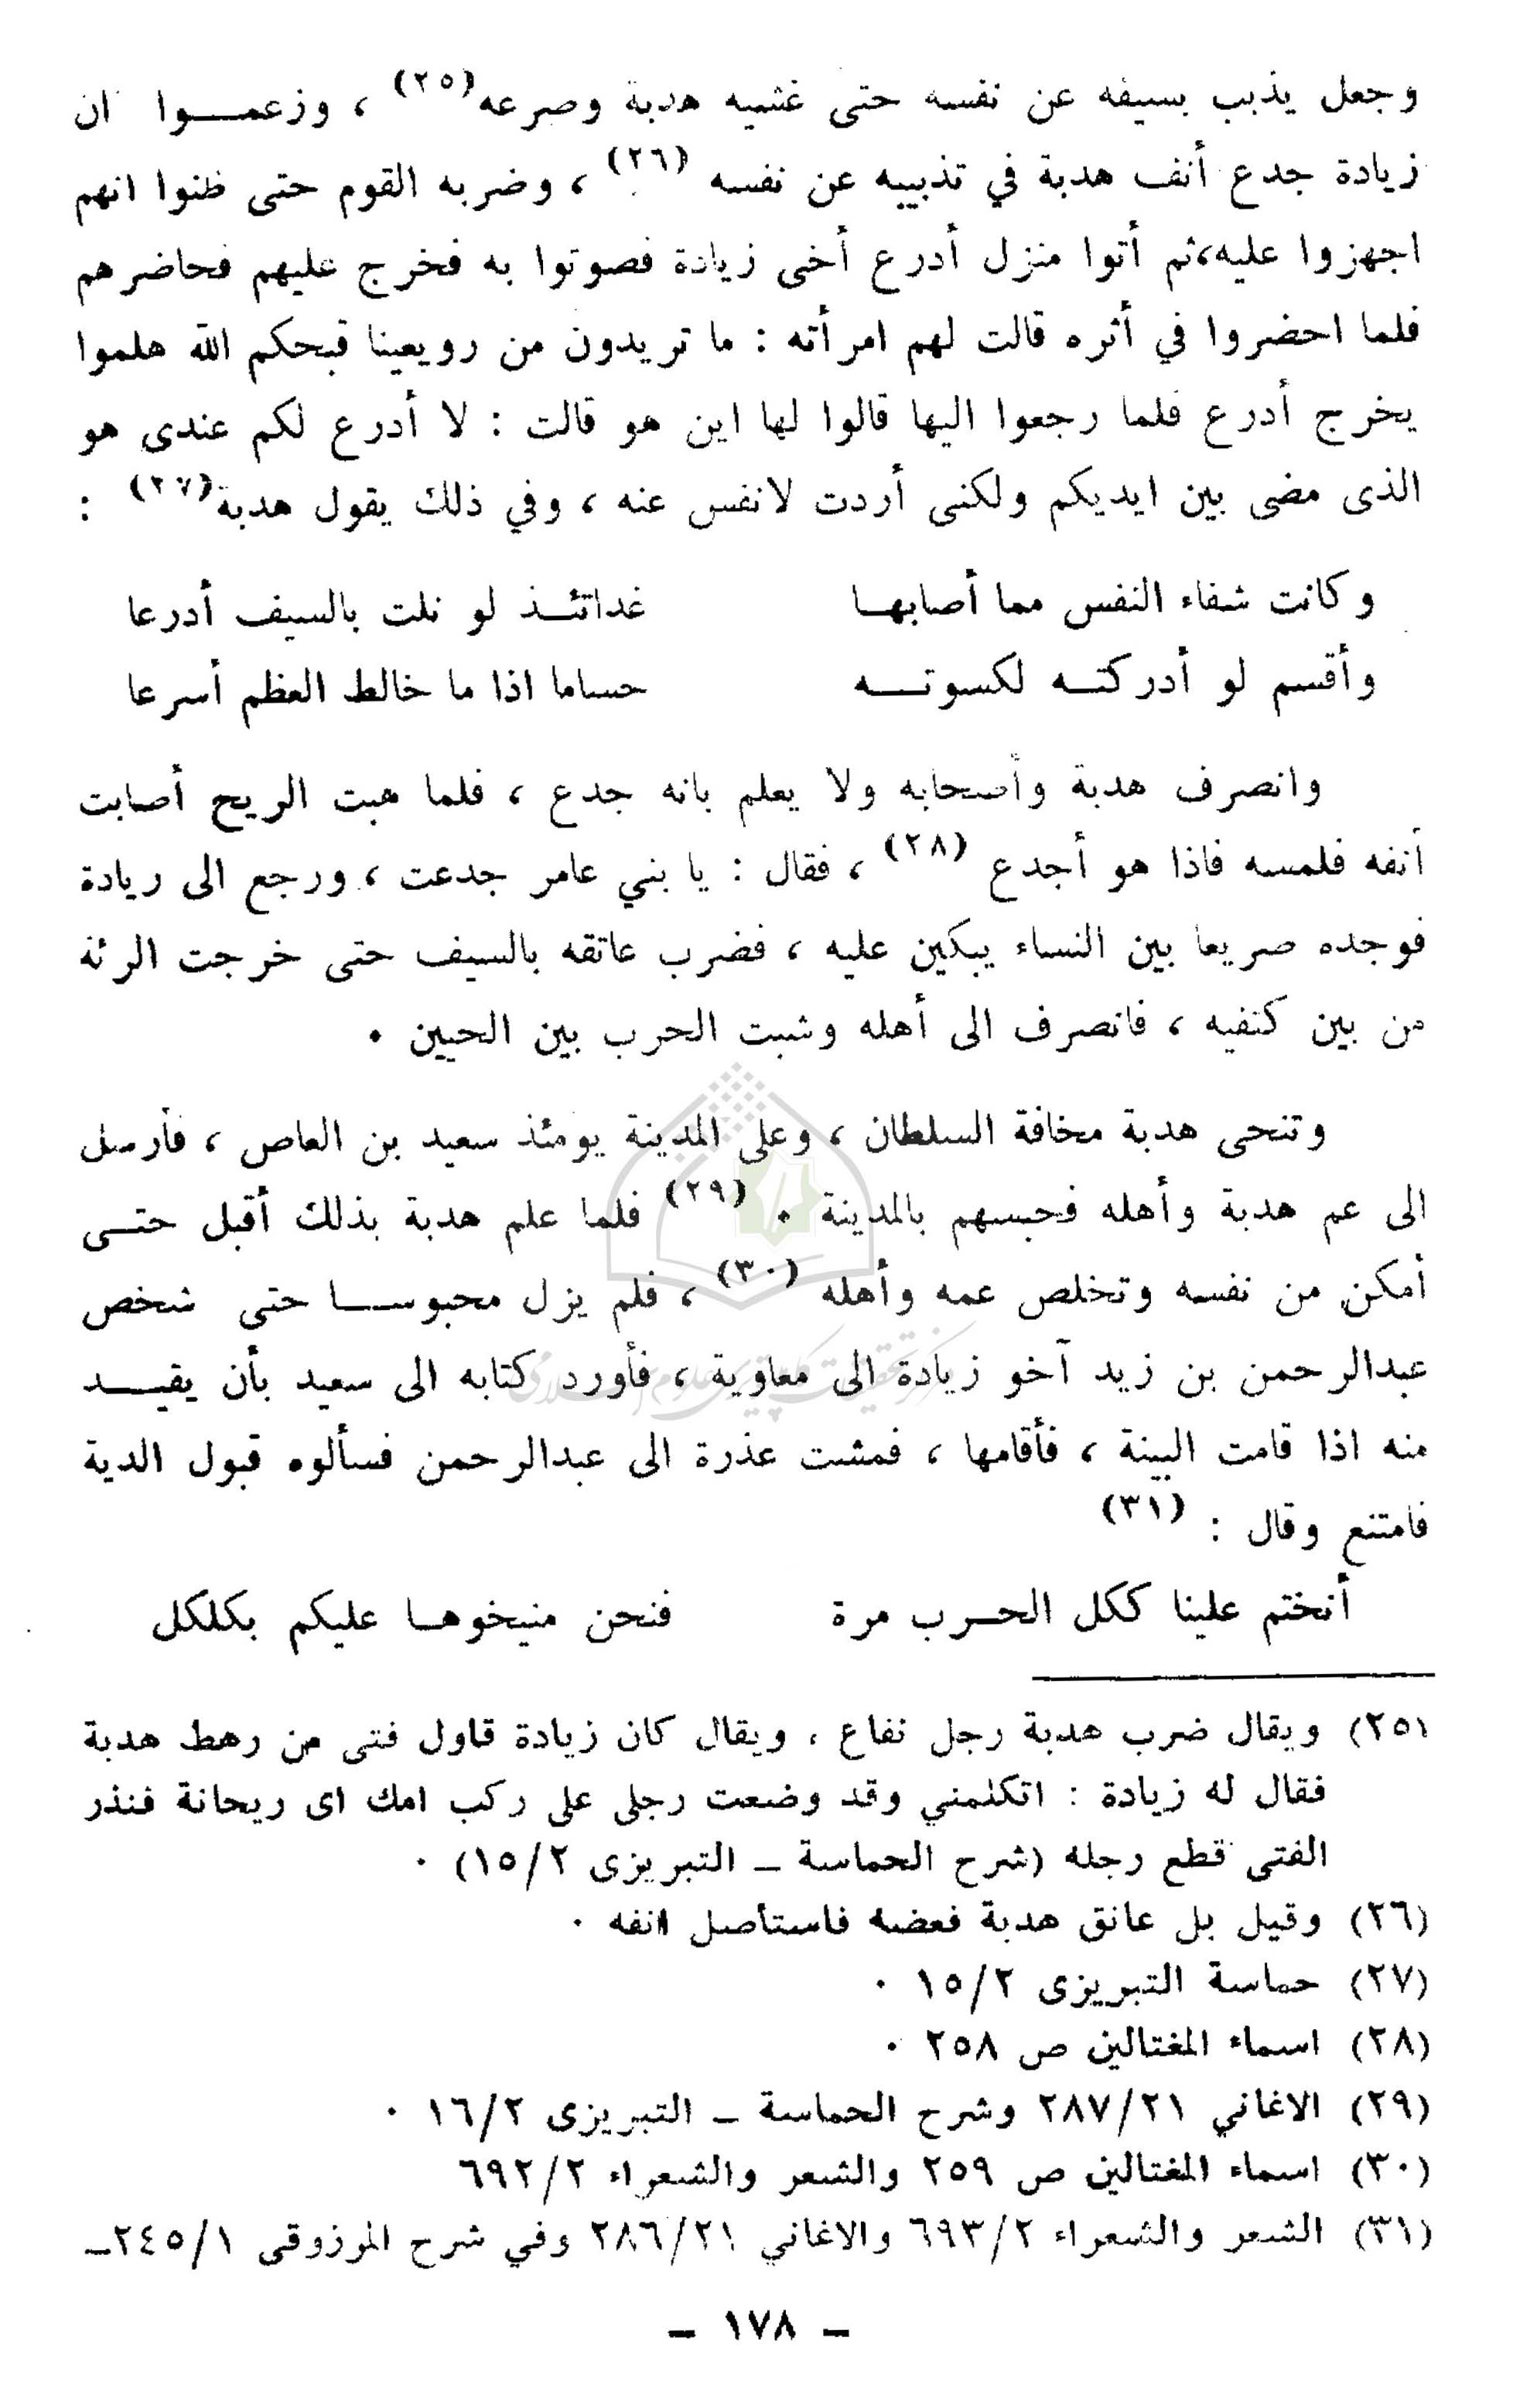 وجعل يذبب بسيفه عن نفسه حتى غشيه هدبة وصرعه(٢٥) ، وزعموا ان
زيادة جدع أنف هدبة في تذبيبه عن نفسه (٢٦) ، وضربه القوم حتى ظنوا انهم
اجهزوا عليه،ثم أتوا منزل أدرع أخى زيادة فصوتوا به فخرج عليهم فحاضرهم
فلما احضروا في أثره قالت لهم امرأته : ما تريدون من رويعينا قبحكم الله هلموا
يخرج أدرع فلما رجعوا اليها قالوا لها اين هو قالت : لا أدرع لكم عندى هو
الذى مضى بين ايديكم ولكنى أردت لانفس عنه ، وفي ذلك يقول هدبة(٢٧) :
وكانت شفاء النفس مما أصابها غداتئذ لو نلت بالسيف أدرعا
وأقسم لو أدركته لكسوته حساما اذا ما خالط العظم أسرعا
وانصرف هدبة وأصحابه ولا يعلم بانه جدع ، فلما هبت الريح أصابت
أنفه فلمسه فاذا هو أجدع (٢٨) ، فقال : يا بني عامر جدعت ، ورجع الى ريادة
فوجده صريعا بين النساء يبكين عليه ، فضرب عاتقه بالسيف حتى خرجت الرئة
من بين كتفيه ، فانصرف الى أهله وشبت الحرب بين الحيين .
وتنحى هدبة مخافة السلطان ، وعلى المدينة يومئذ سعيد بن العاص ، فأرسل
الى عم هدبة وأهله فحبسهم بالمدينة . (٢٩) فلما علم هدبة بذلك أقبل حتى
أمكن من نفسه وتخلص عمه وأهله (٣٠) ، فلم يزل محبوسا حتى شخص
عبدالرحمن بن زيد آخو زيادة الى معاوية ، فأورد كتابه الى سعيد بأن يقيد
منه اذا قامت البينة ، فأقامها ، فمشت عذرة الى عبدالرحمن فسألوه قبول الدية
فامتنع وقال : (٣١)
أنختم علينا ككل الحرب مرة فنحن منيخوها عليكم بكلكل
(٢٥) ويقال ضرب هدبة رجل نفاع ، ويقال كان زيادة قاول فتى من رهط هدبة
فقال له زيادة : اتكلمني وقد وضعت رجلى على ركب امك اى ريحانة فنذر
الفتى قطع رجله (شرح الحماسة ـ التبريزى ١٥/٢) .
(٢٦) وقيل بل عانق هدبة فعضه فاستأصل انفه .
(٢٧) حماسة التبريزى ١٥/٢ .
(٢٨) اسماء المغتالين ص ٢٥٨ .
(٢٩) الاغاني ٢٨٧/٢١ وشرح الحماسة ـ التبريزى ١٦/٢ .
(٣٠) اسماء المغتالين ص ٢٥٩ والشعر والشعراء ٦٩٢/٢
(٣١) الشعر والشعراء ٦٩٣/٢ والاغاني ٢٨٦/٢١ وفي شرح المرزوقى ٢٤٥/١ـ
ـ ١٧٨ ـ